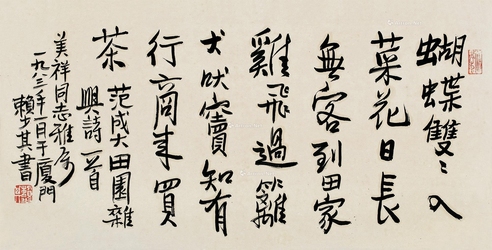 蝴蝶雙〻入
菜花日長
無客到田家
雞飛過籬
犬吠竇知有
行商来買
茶 范成大田園雜
興詩一首
美祥同志雅属
一九八三年一月于廈門
賴少其書